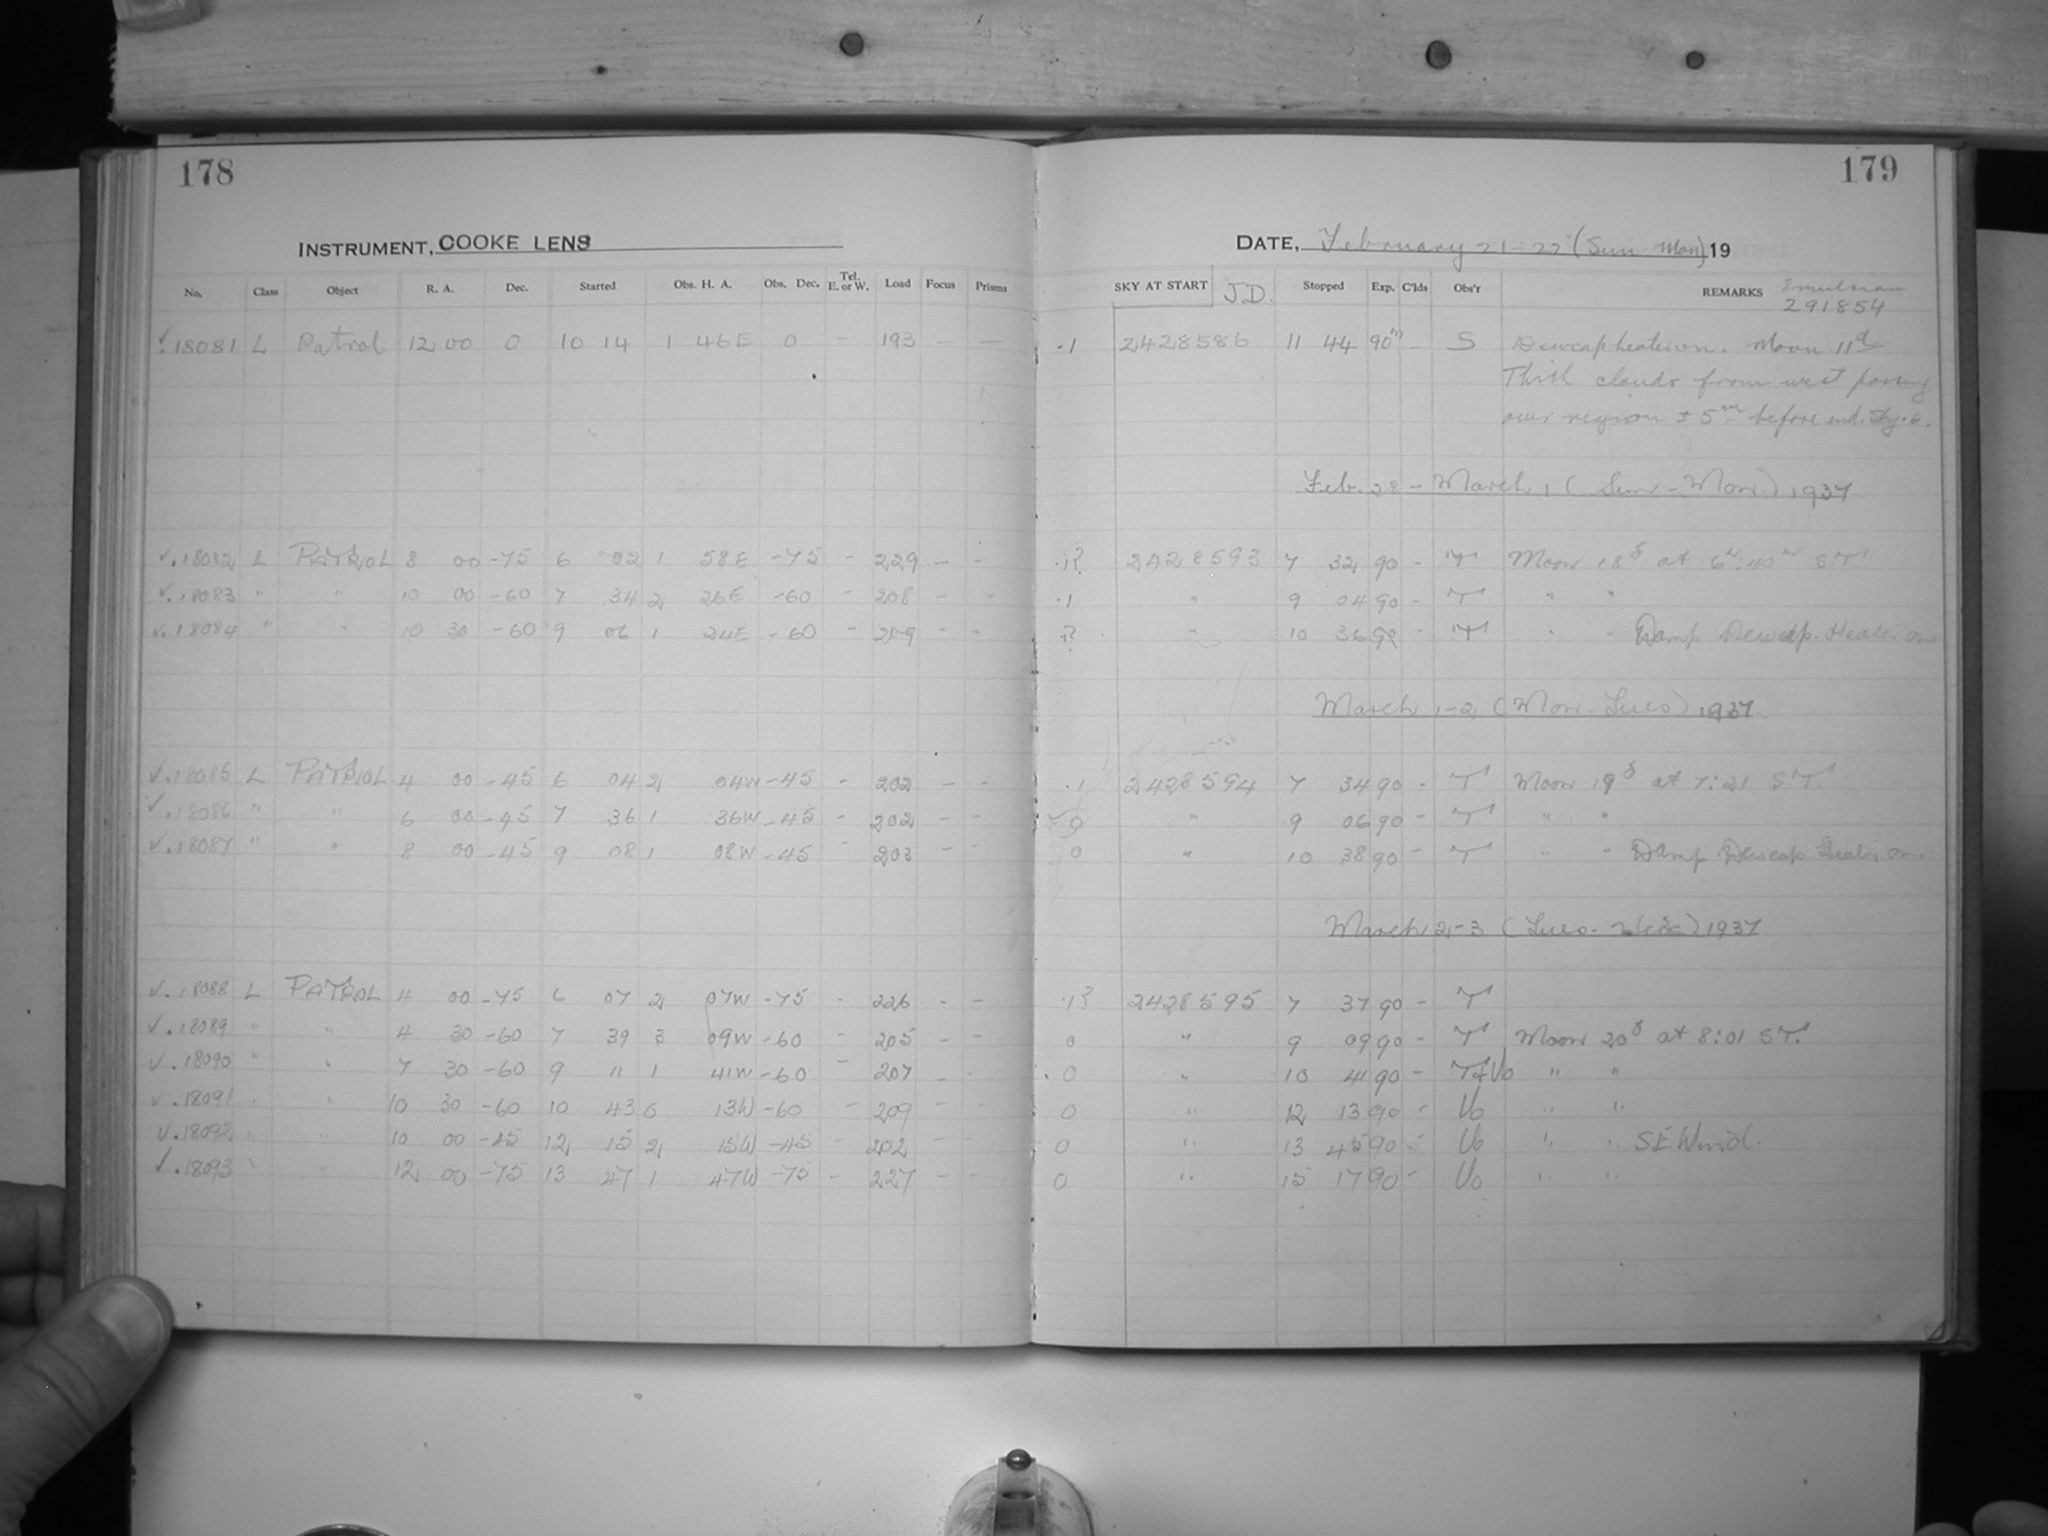 178
INSTRUMENT, COOKE LENS
No. Class Object R. A. Dec. Started Obs. H. A. Obs. Dec. Tel. E. or W. Load Focus Prisms
✓.18081 L Patrol 12 00 0 10 14 1 46E 0 - 193 - -
✓.18082 L PATROL 8 00 -75 6 02 1 58E -75 - 229 - -
✓.18083 " " 10 00 -60 7 34 2 26E -60 - 208 - -
✓.18084 " " 10 30 -60 9 06 1 24E -60 - 209 - -
✓.18085 L PATROL 4 00 -45 6 04 2 04W -45 - 202 - -
✓.18086 " " 6 00 -45 7 36 1 36W -45 - 202 - -
✓.18087 " " 8 00 -45 9 08 1 08W -45 - 203 - -
✓.18088 L PATROL 4 00 -75 6 07 2 07W -75 - 226 - -
✓.18089 " " 4 30 -60 7 39 3 09W -60 - 205 - -
✓.18090 " " 7 30 -60 9 11 1 41W -60 - 207 - -
✓.18091 " " 10 30 -60 10 43 0 13W -60 - 209 - -
✓.18092 " " 10 00 -45 12 15 2 15W -45 - 202 - -
✓.18093 " " 12 00 -75 13 47 1 47W -75 - 227 - -
179
DATE, February 21-22 (Sun-Mon) 19
SKY AT START J.D. Stopped Exp. C'lds Obs'r REMARKS Emulsion
291854
.1 2428586 11 44 90m - S Dewcap heater on. Moon 11d
Thick clouds from west passing
over region ± 5m before end. Sky .6.
Feb. 28 - March 1 (Sun-Mon.) 1937
.1? 2428593 7 32 90 - T Moon 18d at 6h:40m ST
.1 " 9 04 90 - T " "
.? " 10 36 90 - T " " Damp Dewcap Heater on
March 1-2 (Mon-Tues) 1937.
.1 2428594 7 34 90 - T Moon 19d at 7:21 ST.
0 " 9 06 90 - T " "
0 " 10 38 90 - T " " Damp Dewcap Heater on.
March 2-3 (Tues-Wed) 1937
.1? 2428595 7 37 90 - T
0 " 9 09 90 - T Moon 20d at 8:01 ST.
.0 " 10 41 90 - T&Vo " "
0 " 12 13 90 - Vo " "
0 " 13 45 90 - Vo " " S.E. Wind.
0 " 15 17 90 - Vo " "